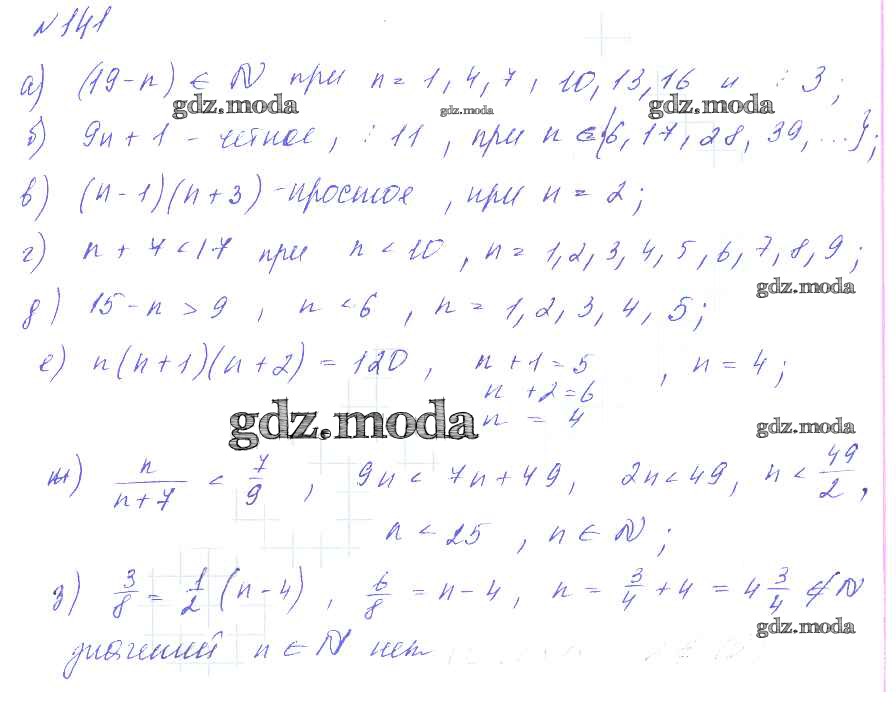 № 141
а) (19-n) ∈ N при n = 1, 4, 7, 10, 13, 16 и ⋮ 3;
gdz.moda gdz.moda gdz.moda
б) 9n + 1 - четное, ⋮ 11, при n ∈ {6, 17, 28, 39, ...};
в) (n - 1)(n + 3) - простое, при n = 2;
г) n + 7 < 17 при n < 10, n = 1, 2, 3, 4, 5, 6, 7, 8, 9;
gdz.moda
д) 15 - n > 9, n < 6, n = 1, 2, 3, 4, 5;
е) n(n+1)(n+2) = 120, n + 1 = 5, n = 4;
n + 2 = 6
n = 4
gdz.moda gdz.moda
ж) n/(n+7) < 7/9, 9n < 7n + 49, 2n < 49, n < 49/2,
n < 25, n ∈ N;
з) 3/8 = 1/2 (n - 4), 6/8 = n - 4, n = 3/4 + 4 = 4 3/4 ∉ N
gdz.moda
значений n ∈ N нет